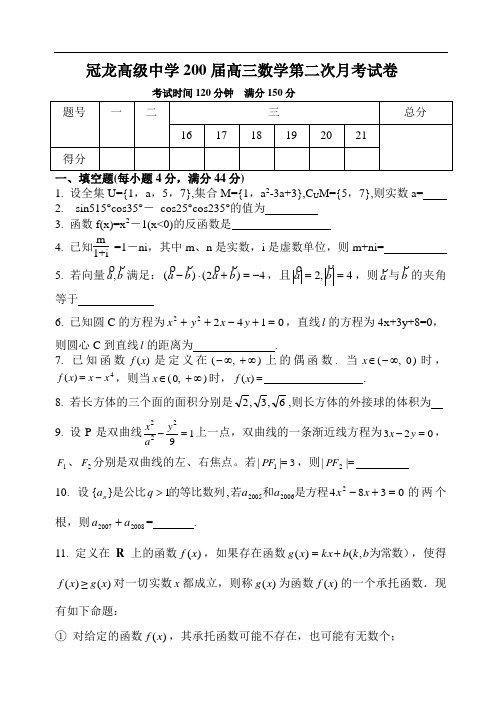 冠龙高级中学200届高三数学第二次月考试卷
考试时间120分钟 满分150分
题号 一 二 三 总分
16 17 18 19 20 21
得分
一、填空题(每小题4分，满分44分)
1. 设全集U={1，a，5，7},集合M={1，a²-3a+3},CᵤM={5，7},则实数a=
2. sin515°cos35°－ cos25°cos235°的值为
3. 函数f(x)=x²－1(x<0)的反函数是
4. 已知m/(1+i) =1－ni，其中m、n是实数，i是虚数单位，则m+ni=
5. 若向量a,b满足：(a−b)·(2a+b)=−4，且|a|=2,|b|=4，则a与b的夹角
等于
6. 已知圆C的方程为x²+y²+2x−4y+1=0，直线l的方程为4x+3y+8=0，
则圆心C到直线l的距离为 .
7. 已知函数f(x)是定义在(−∞,+∞)上的偶函数. 当x∈(−∞, 0)时，
f(x)=x−x⁴，则当x∈(0, +∞)时，f(x)= .
8. 若长方体的三个面的面积分别是√2,√3,√6,则长方体的外接球的体积为
9. 设P是双曲线x²/a²−y²/9=1上一点，双曲线的一条渐近线方程为3x−2y=0，
F₁、F₂分别是双曲线的左、右焦点。若|PF₁|=3，则|PF₂|=
10. 设{aₙ}是公比q>1的等比数列,若a₂₀₀₅和a₂₀₀₆是方程4x²−8x+3=0的两个
根，则a₂₀₀₇+a₂₀₀₈= .
11. 定义在R上的函数f(x)，如果存在函数g(x)=kx+b(k,b为常数)，使得
f(x)≥g(x)对一切实数x都成立，则称g(x)为函数f(x)的一个承托函数．现
有如下命题：
① 对给定的函数f(x)，其承托函数可能不存在，也可能有无数个；